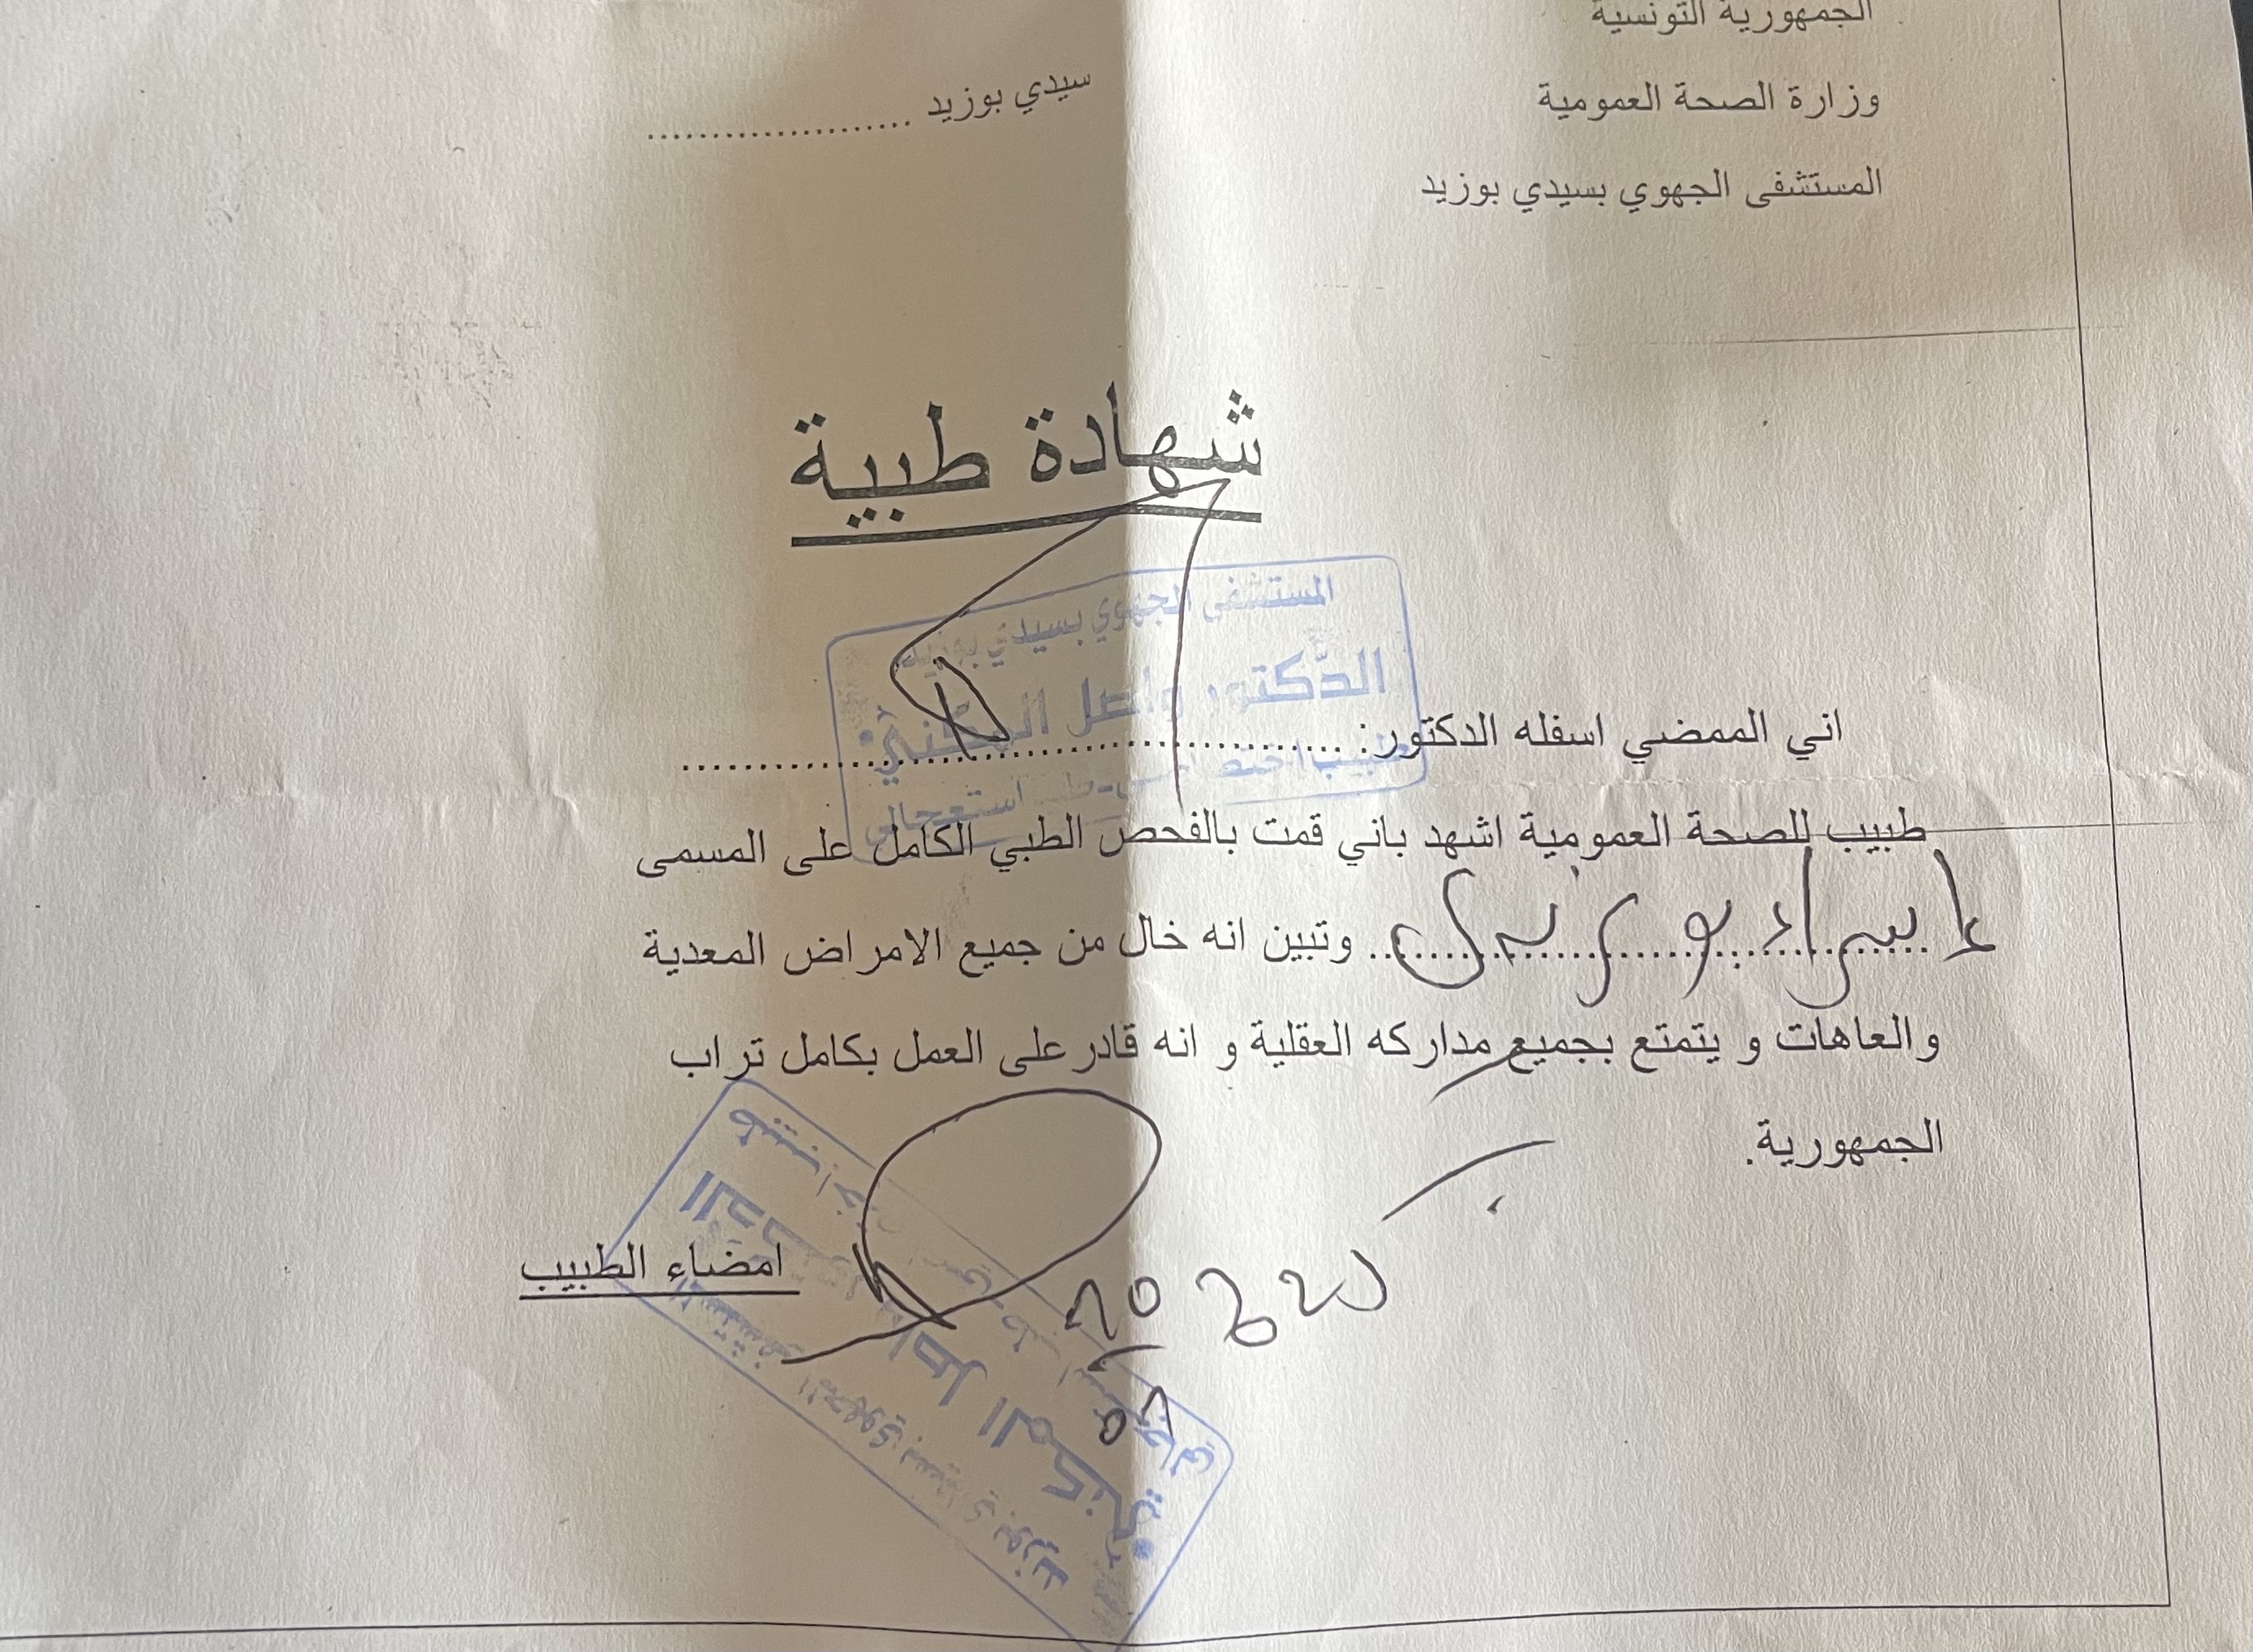 الجمهورية التونسية
وزارة الصحة العمومية
المستشفى الجهوي بسيدي بوزيد
سيدي بوزيد .....................
شهادة طبية
المستشفى الجهوي بسيدي بوزيد
الدكتور واصل المكني
طبيب استعجالي
اني الممضي اسفله الدكتور: ....................................................
طبيب للصحة العمومية اشهد باني قمت بالفحص الطبي الكامل على المسمى
وتبين انه خال من جميع الامراض المعدية
والعاهات و يتمتع بجميع مداركه العقلية و انه قادر على العمل بكامل تراب
الجمهورية.
امضاء الطبيب
المستشفى الجهوي بسيدي بوزيد
الدكتور واصل المكني